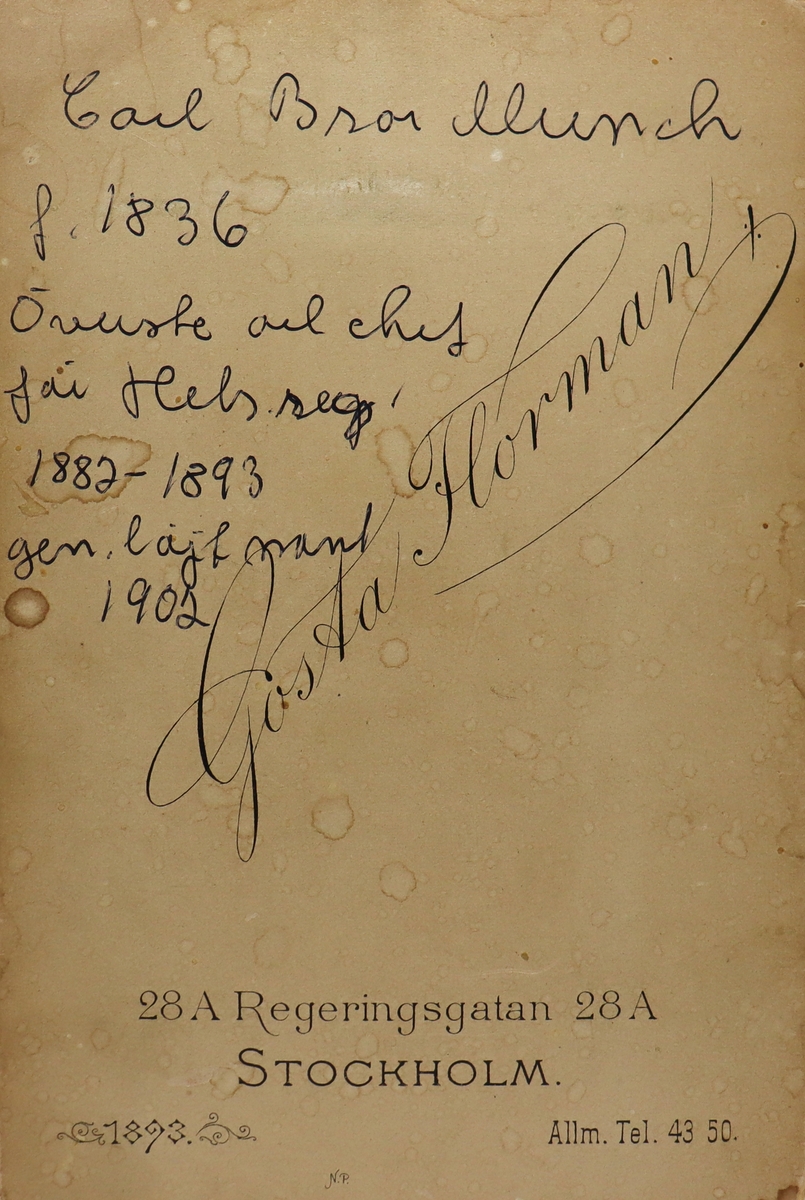 Carl Bror Munch
f. 1836
Överste och chef
för Hels. reg.
1882-1893
gen. löjtnant
1902
Gösta Florman
28 A Regeringsgatan 28 A
STOCKHOLM.
1893.
Allm. Tel. 43 50.
N.P.